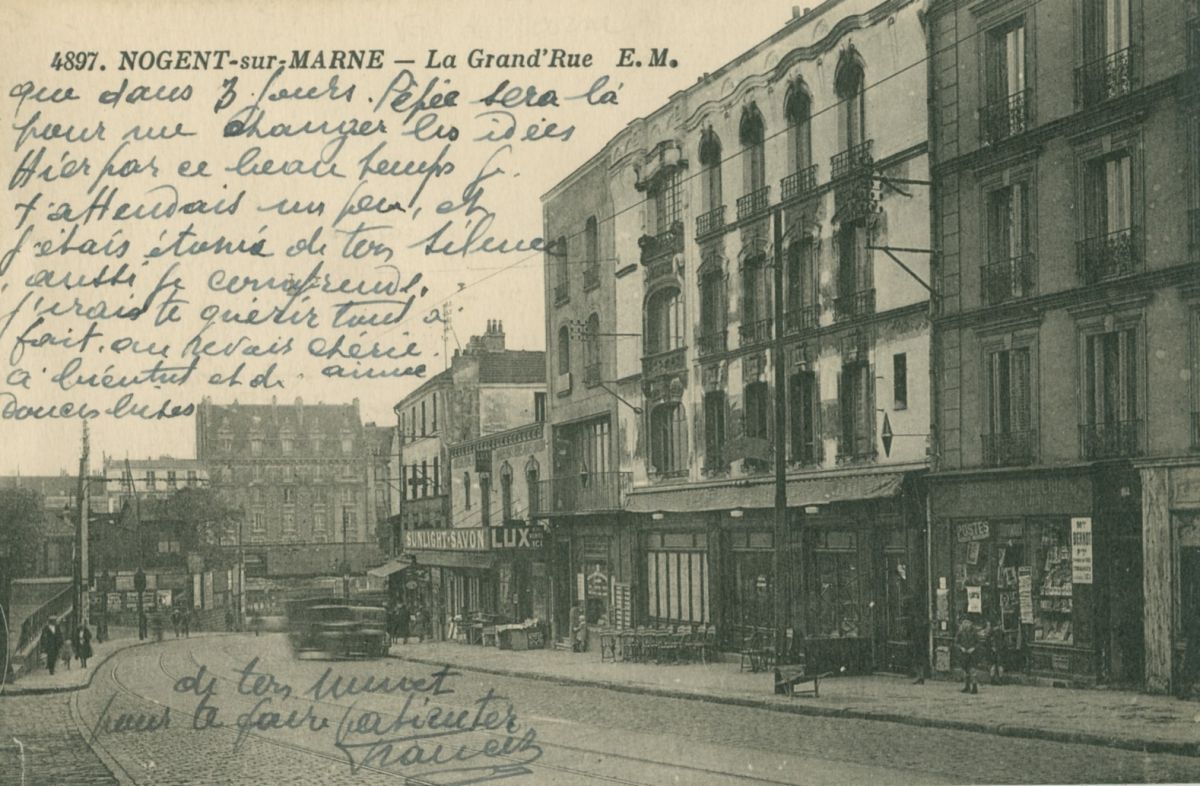 4897. NOGENT-sur-MARNE — La Grand'Rue E.M.
que dans 3 jours. Pépée sera là
pour me changer les idées
Hier par ce beau temps je
t'attendais un peu, et
j'étais étonné de ton silence
aussi je comprends,
j'irais te quérir tout à
fait. au revoir chérie
à bientôt et de
douces bises
SUNLIGHT-SAVON LUX
POSTES
de ton
pour te faire patienter
Francis